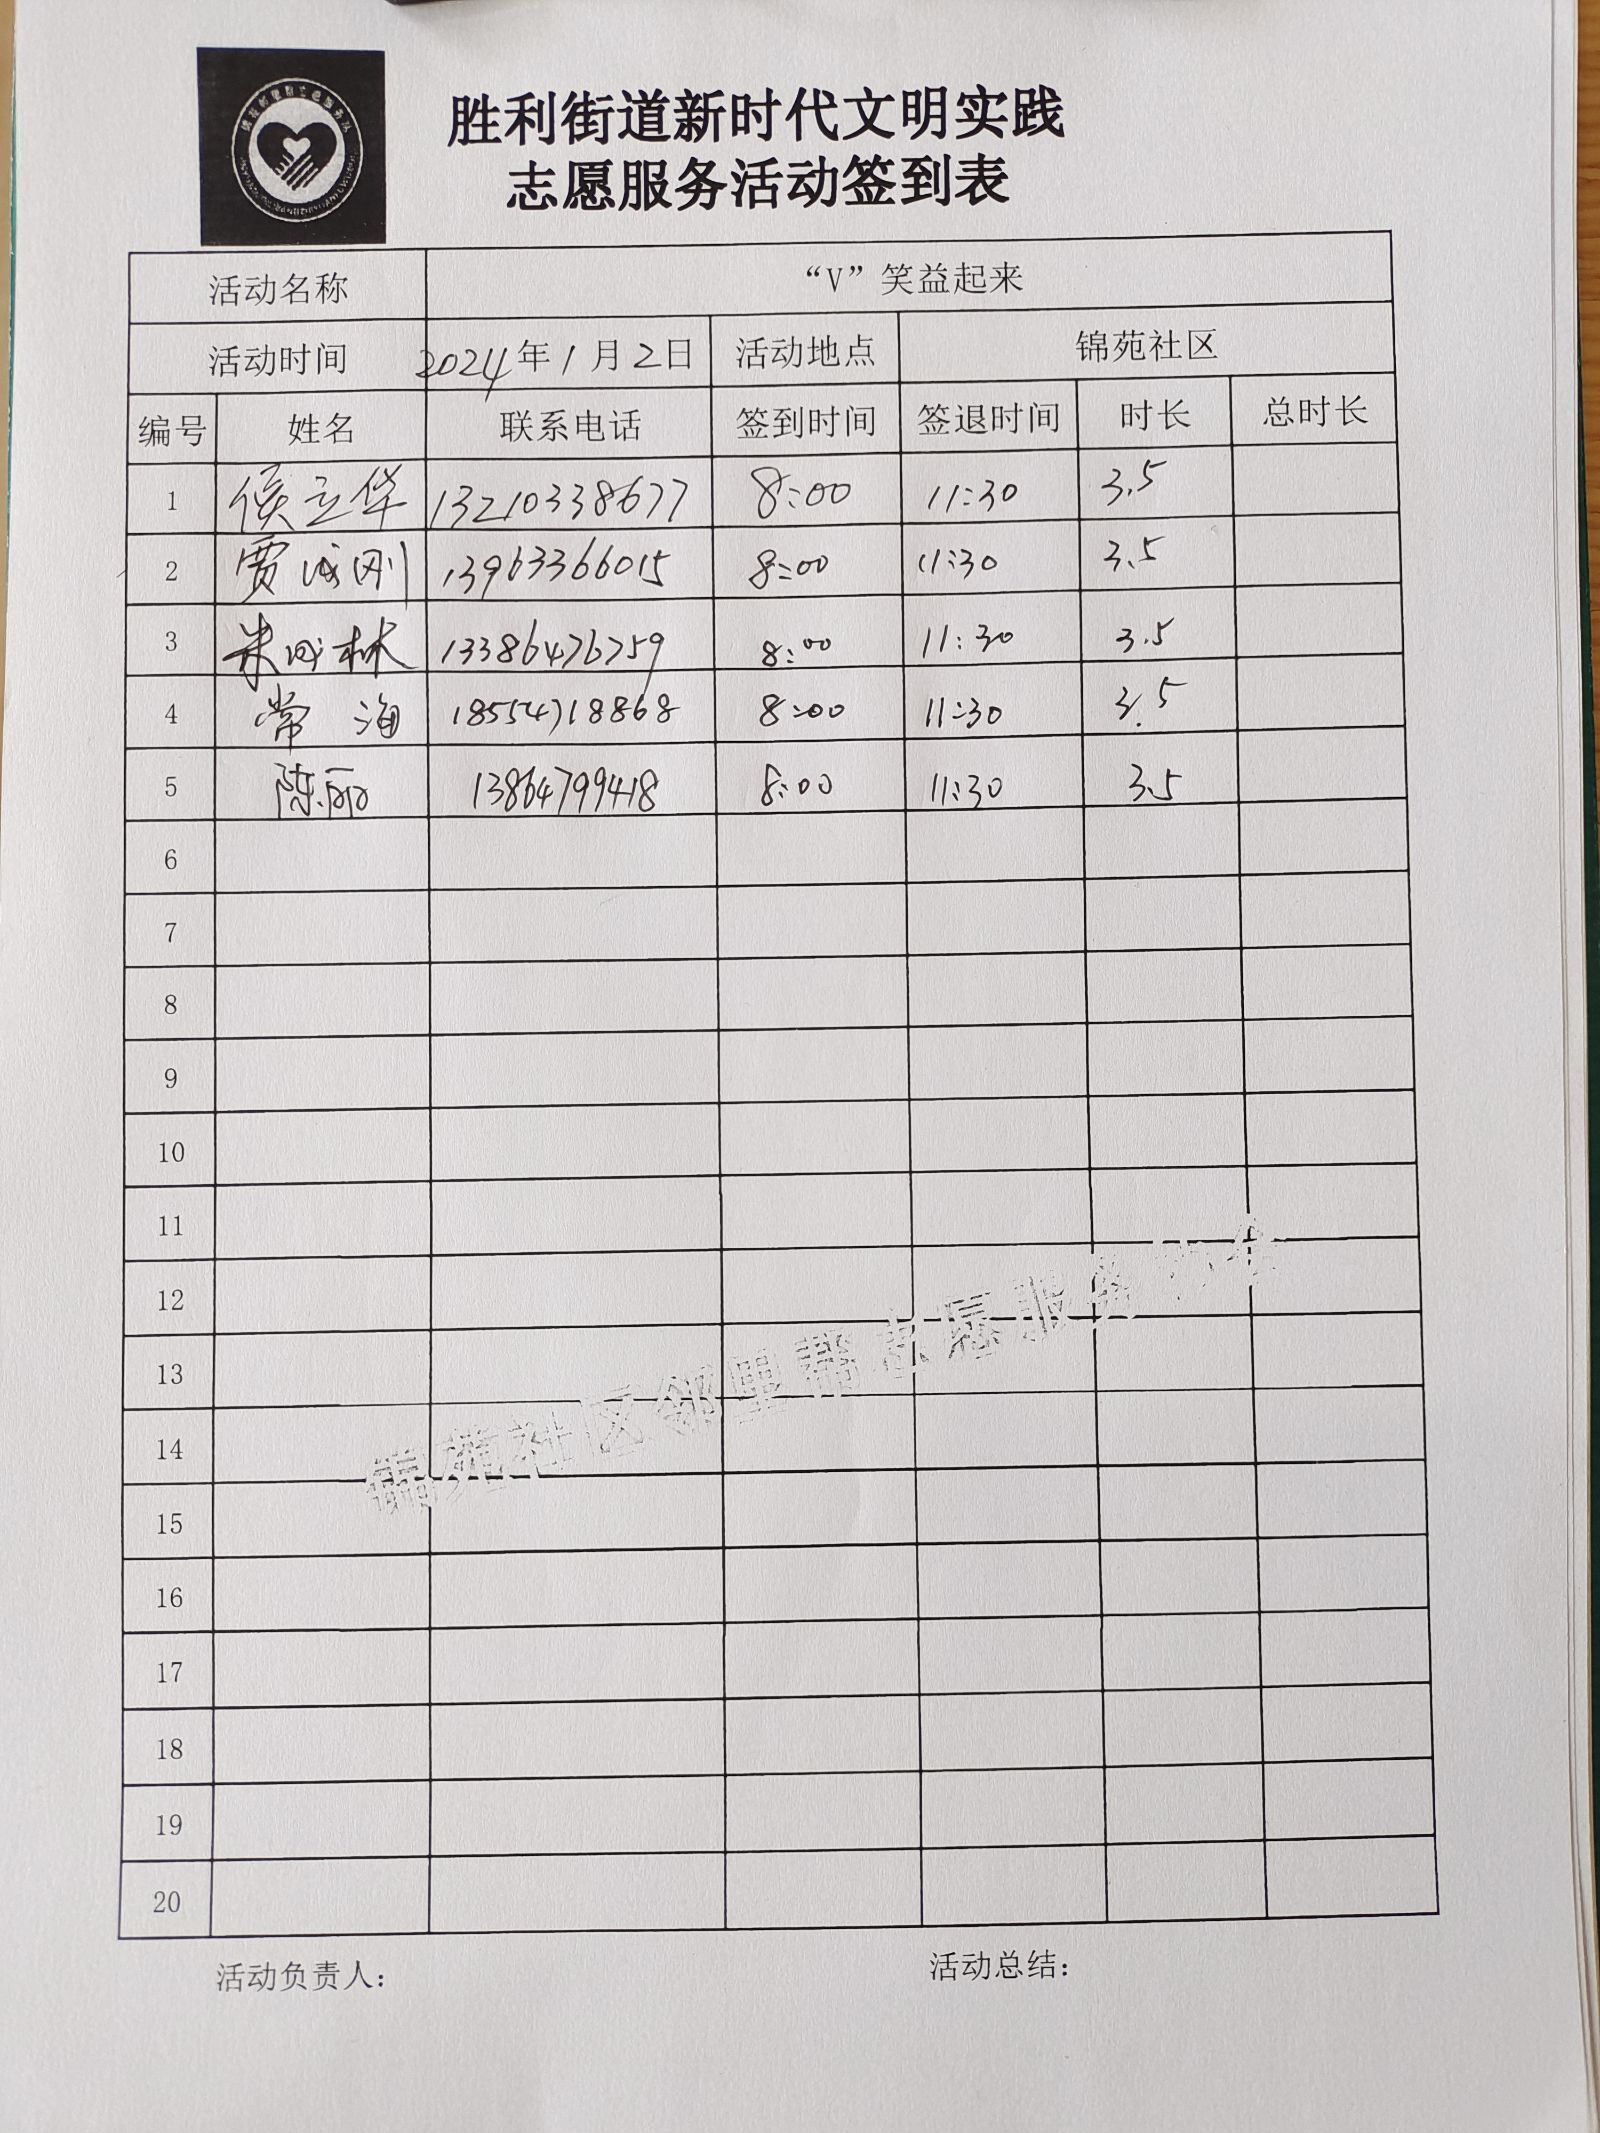 胜利街道新时代文明实践
志愿服务活动签到表
活动名称 “V”笑益起来
活动时间 2024年1月2日 活动地点 锦苑社区
编号 姓名 联系电话 签到时间 签退时间 时长 总时长
1 侯立华 13210338677 8:00 11:30 3.5
2 贾成刚 13963366015 8:00 11:30 3.5
3 朱成林 13386476759 8:00 11:30 3.5
4 常海 18554718868 8:00 11:30 3.5
5 陈丽 13864799418 8:00 11:30 3.5
6
7
8
9
10
11
12
13
14
15
16
17
18
19
20
锦苑社区邻里帮志愿服务协会
活动负责人： 活动总结：